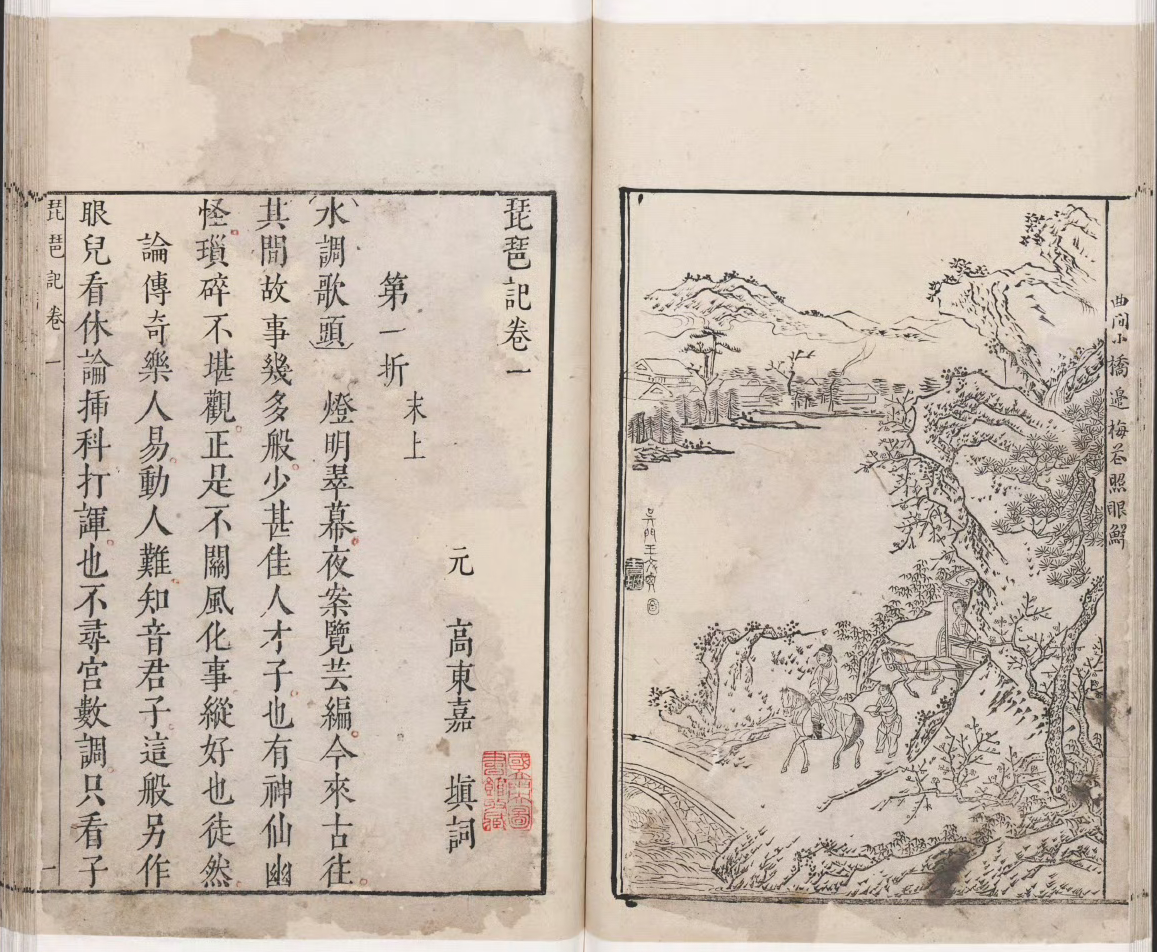 曲澗小橋邊梅花照眼鮮
吳門王文衡
琵琶記卷一
元 高東嘉 塡詞
第一折 末上
水調歌頭 燈明翠幕夜案覽芸編今來古往
其間故事幾多般少甚佳人才子也有神仙幽
怪瑣碎不堪觀正是不關風化事縱好也徒然
論傳奇樂人易動人難知音君子這般另作
眼兒看休論揷科打諢也不尋宮數調只看子
琵琶記 卷一 一
國立北平圖書館收藏